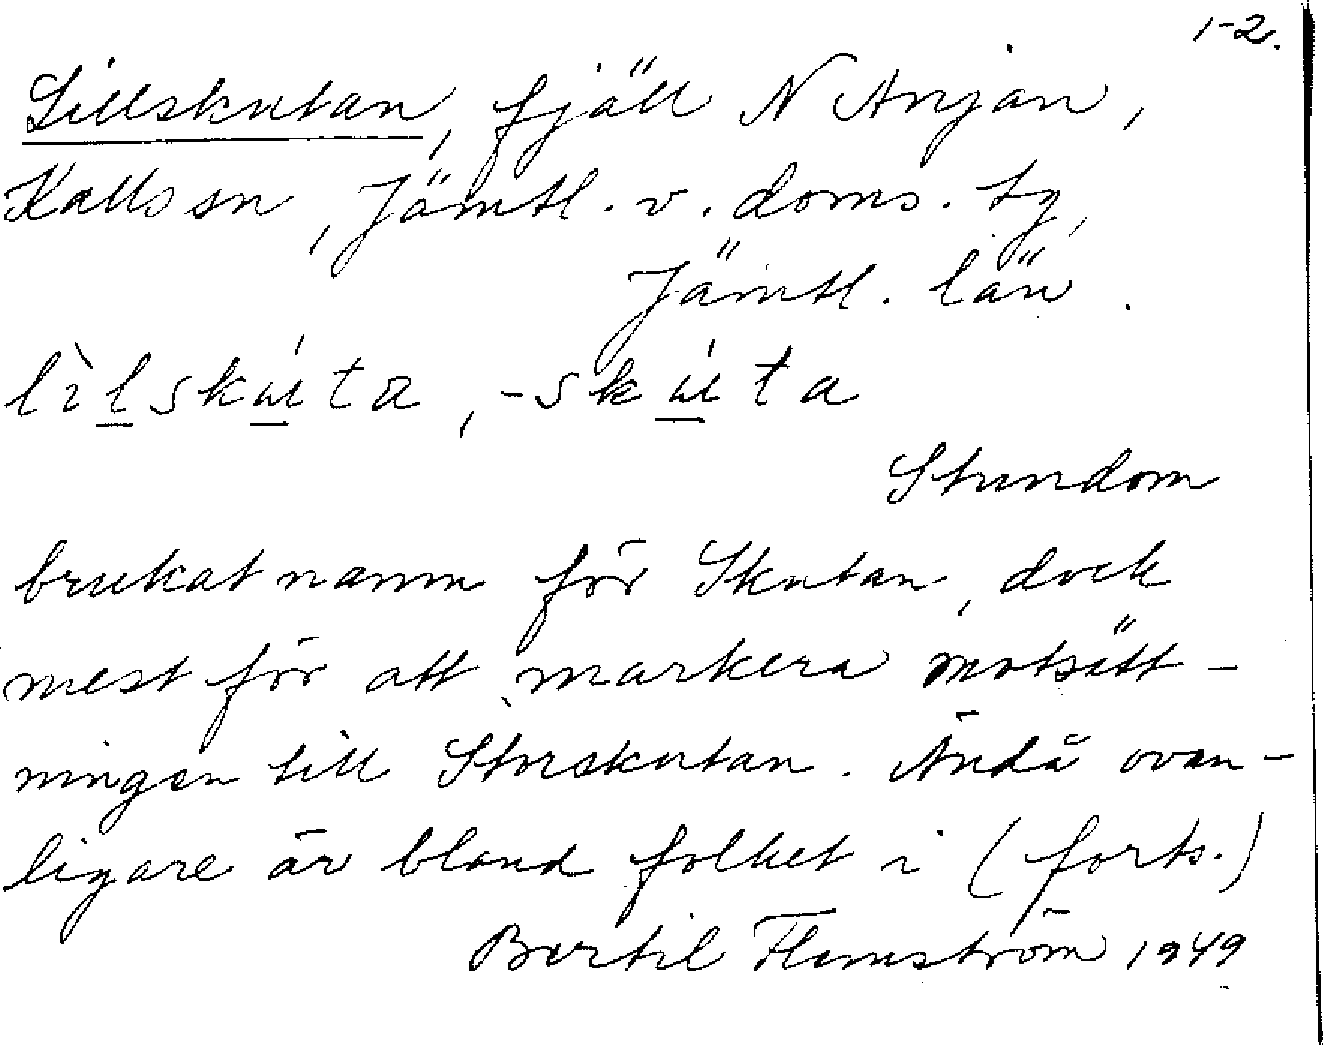 1-2.
Lillskutan, fjäll N Anjan,
Kalls sn, Jämtl. v. doms. tg,
Jämtl. län.
lìlskúta, -skúta
Stundom
brukat namn för Skutan, dock
mest för att markera motsätt-
ningen till Storskutan. Ändå ovan-
ligare är bland folket i (forts.)
Bertil Flemström 1949